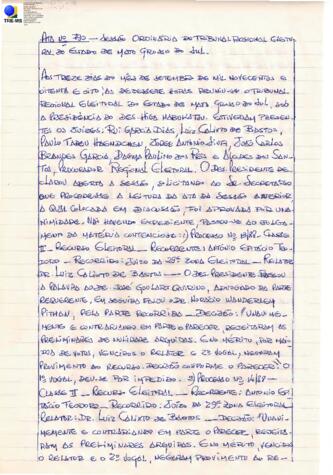 TRE-MS
ATA Nº 790 - SESSÃO ORDINÁRIA DO TRIBUNAL REGIONAL ELEITO-
RAL DO ESTADO DE MATO GROSSO DO SUL.
AOS TREZE DIAS DO MÊS DE SETEMBRO DE MIL NOVECENTOS E
OITENTA E OITO, ÀS DEZESSETE HORAS REUNIU-SE O TRIBUNAL
REGIONAL ELEITORAL DO ESTADO DE MATO GROSSO DO SUL, SOB
A PRESIDÊNCIA DO DES. HIGA NABUKATSU. ESTIVERAM PRESEN-
TES OS JUÍZES: RUI GARCIA DIAS, LUIZ CALIXTO DE BASTOS,
PAULO TADEU HAENDCHEN, JORGE ANTONIO SIUFI, JOSÉ CARLOS
BRANDES GARCIA, DAGMA PAULINO DOS REIS E ALCIDES DOS SAN-
TOS, PROCURADOR REGIONAL ELEITORAL. O DES. PRESIDENTE DE-
CLAROU ABERTA A SESSÃO, SOLICITANDO AO SR. SECRETÁRIO
QUE PROCEDESSE A LEITURA DA ATA DA SESSÃO ANTERIOR
A QUAL COLOCADA EM DISCUSSÃO, FOI APROVADA POR UNA-
NIMIDADE. NÃO HAVENDO EXPEDIENTE, PASSOU-SE AO JULGA-
MENTO DA MATÉRIA CONTENCIOSA: 1) PROCESSO Nº /88 - CLASSE
II - RECURSO ELEITORAL - RECORRENTE: ANTÔNIO EPITÁCIO TEO-
DORO - RECORRIDO: JUÍZO DA 29ª ZONA ELEITORAL - RELATOR
DR. LUIZ CALIXTO DE BASTOS - O DES. PRESIDENTE PASSOU
A PALAVRA AO DR. JOSÉ GOULART QUIRINO, ADVOGADO DA PARTE
REQUERENTE, EM SEGUIDA FALOU O DR. HORÁCIO WANDERLEY
PITHAN, PELA PARTE RECORRIDA - DECISÃO: "UNANIME-
MENTE E CONTRARIANDO EM PARTE O PARECER, REJEITARAM AS
PRELIMINARES DE NULIDADE ARGUIDAS. E NO MÉRITO, POR MA-
IORIA DE VOTOS, VENCIDOS O RELATOR E O 2º VOGAL, NEGARAM
PROVIMENTO AO RECURSO. DECISÃO CONFORME O PARECER". O
1º VOGAL DEU-SE POR IMPEDIDO. 2) PROCESSO Nº /88 -
CLASSE II - RECURSO ELEITORAL - RECORRENTE: ANTONIO EPI-
TÁCIO TEODORO - RECORRIDO: JUÍZO DA 29ª ZONA ELEITORAL
RELATOR: DR. LUIZ CALIXTO DE BASTOS - DECISÃO: "UNANI-
MEMENTE E CONTRARIANDO EM PARTE O PARECER, REJEITA-
RAM AS PRELIMINARES ARGUIDAS. E NO MÉRITO, VENCIDO
O RELATOR E O 2º VOGAL, NEGARAM PROVIMENTO AO RE-